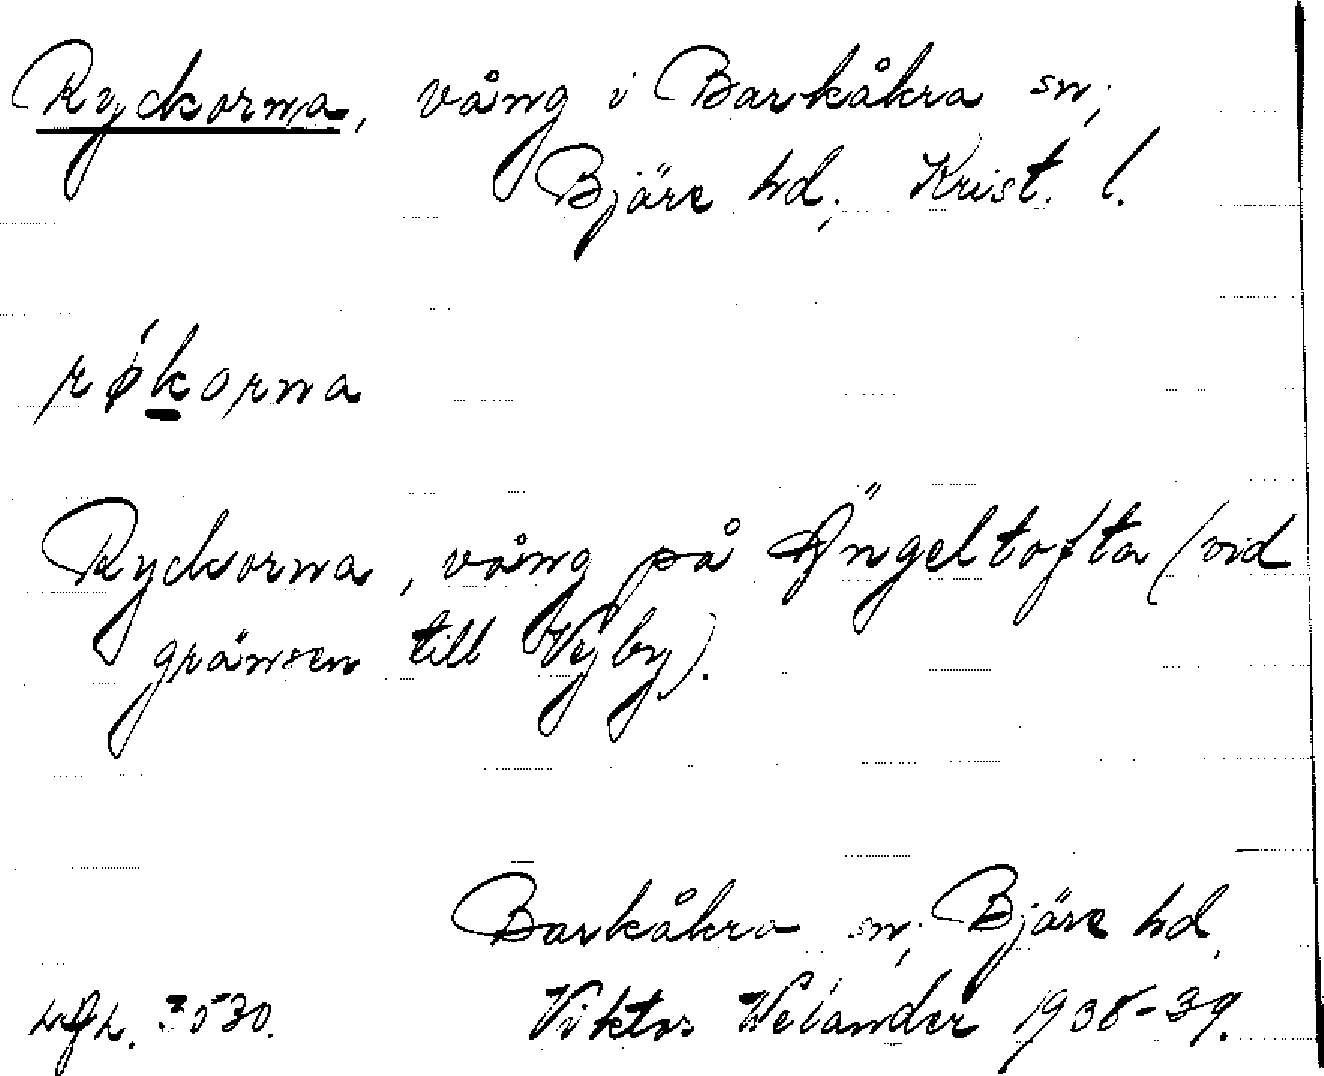 Ryckorna, vång i Barkåkra sn;
Bjäre hd; Krist. l.
rǿkorna
Ryckorna, vång på Ängeltofta (vid
gränsen till Vejby).
Barkåkra sn; Bjäre hd,
3530. Viktor Welander 1938-39.